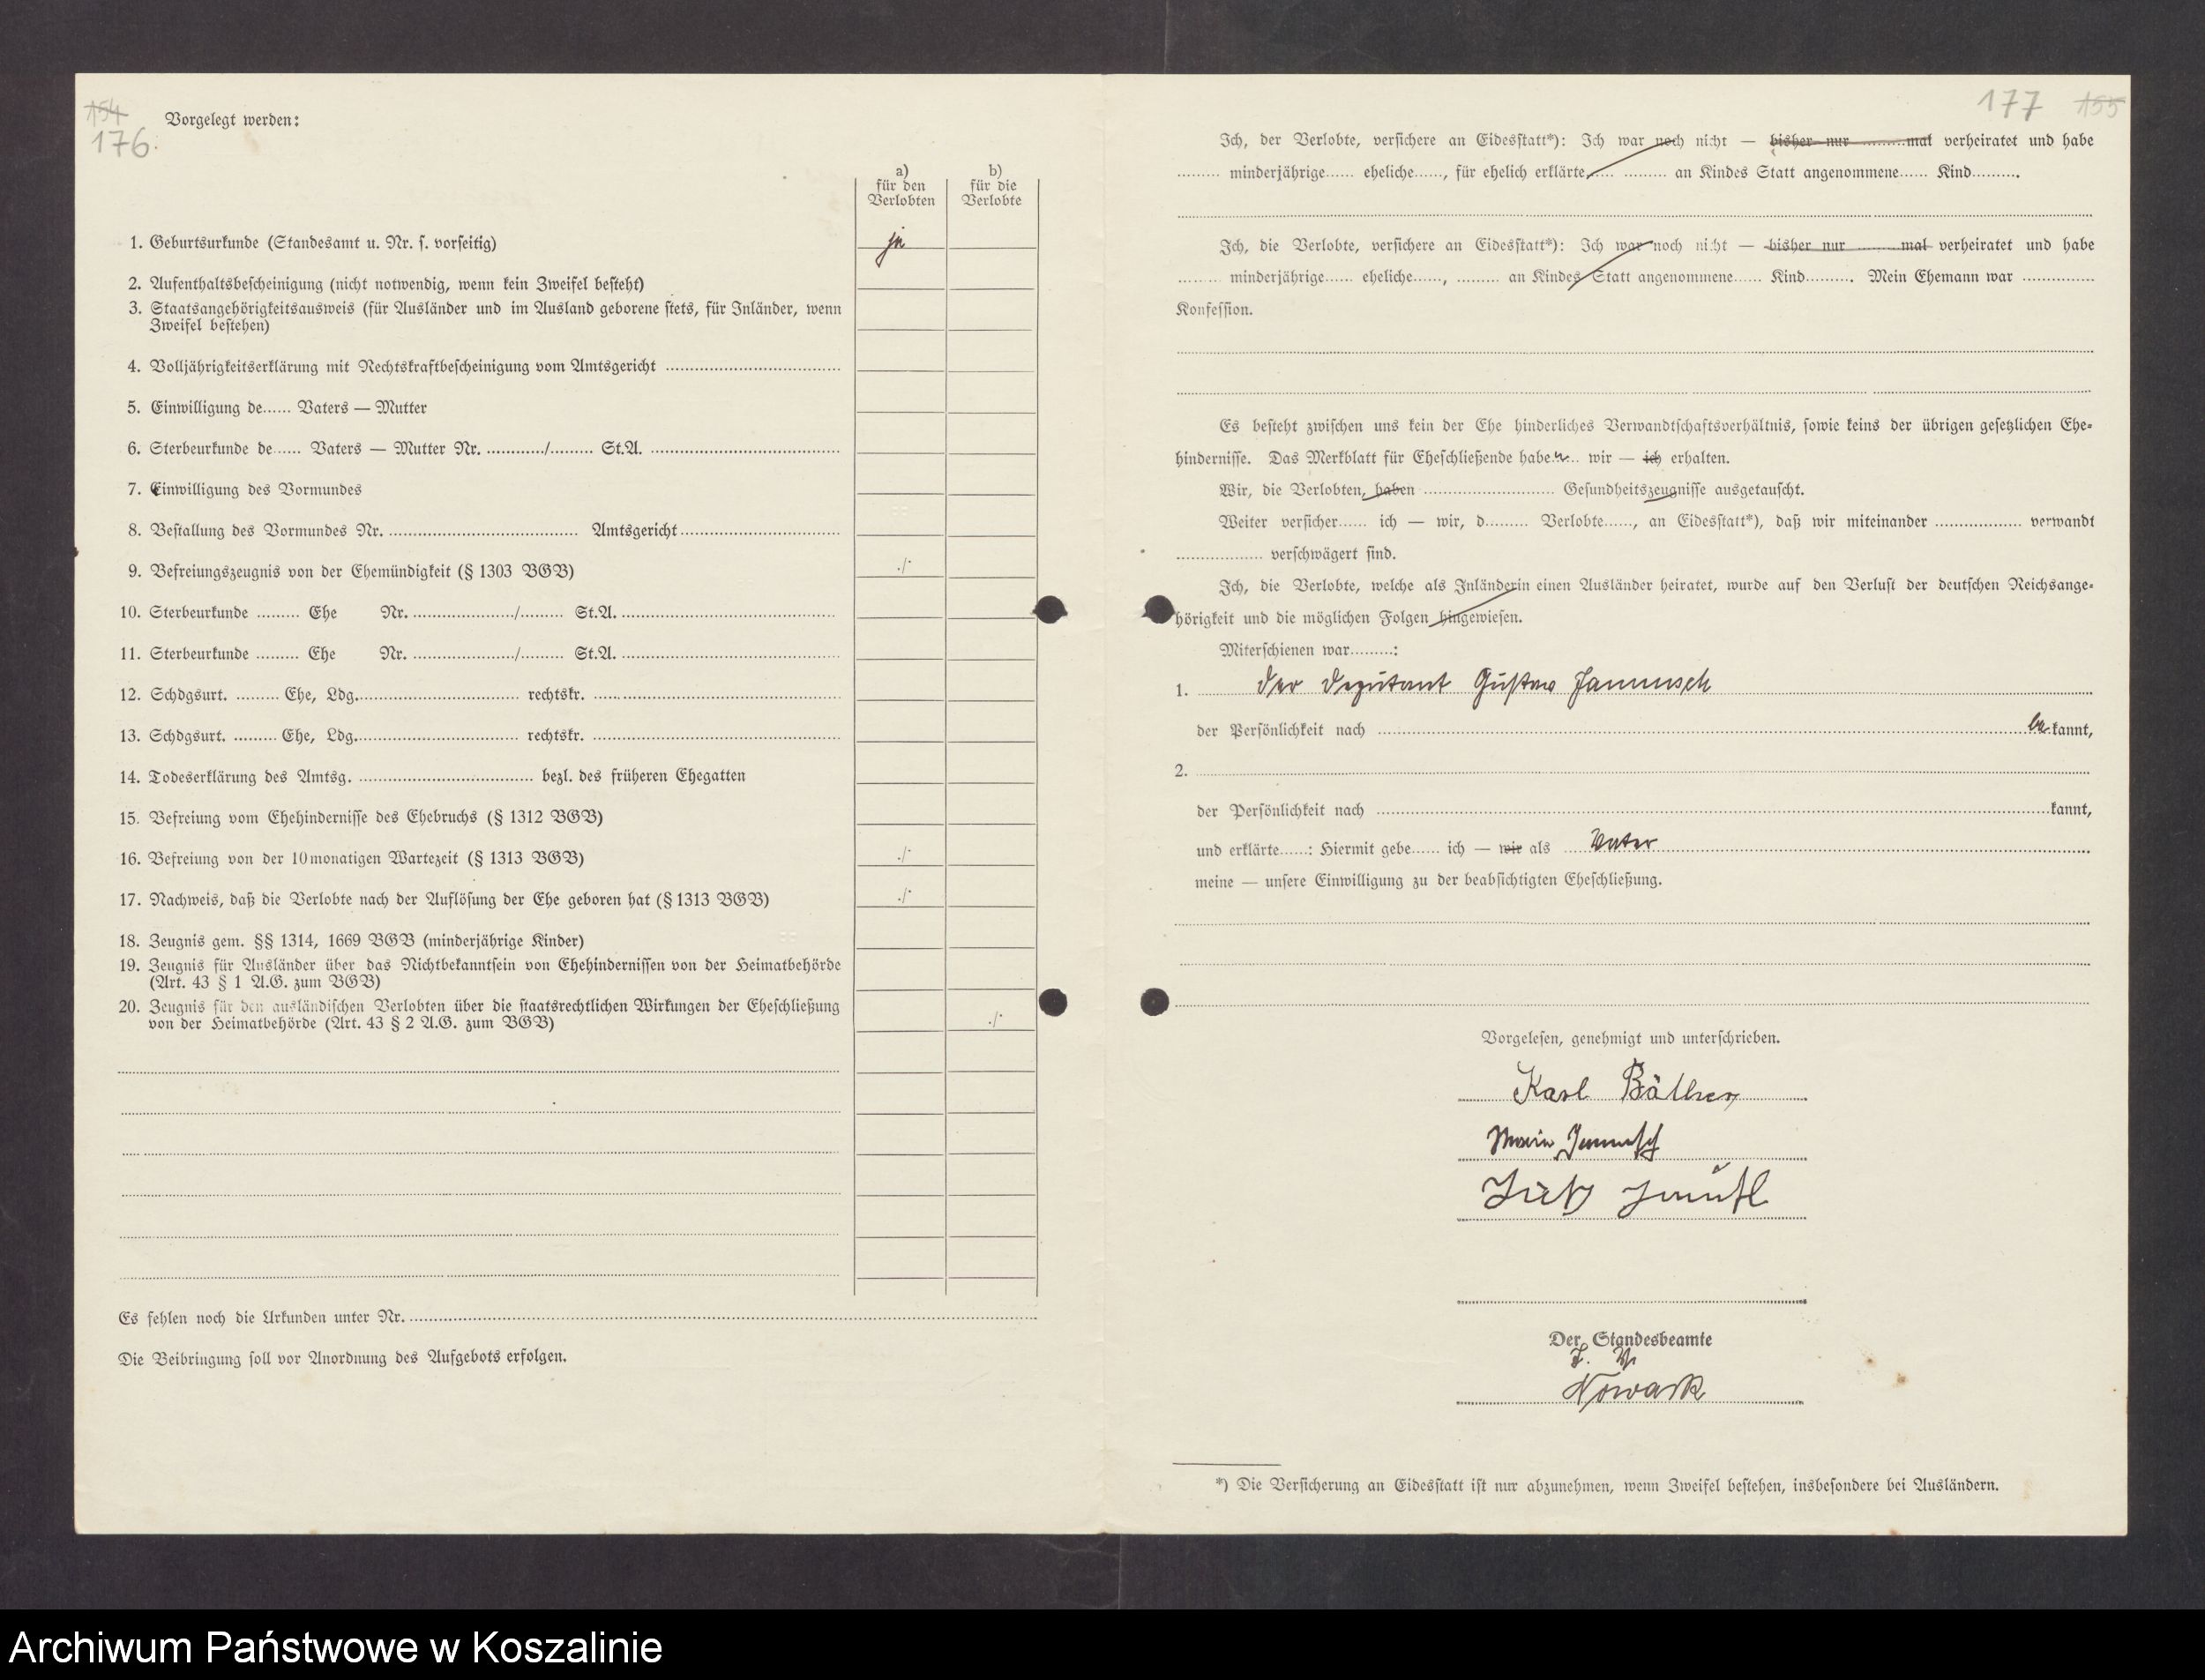 154
176.
Vorgelegt werden:
a)
für den
Verlobten
b)
für die
Verlobte
1. Geburtsurkunde (Standesamt u. Nr. s. vorseitig) ja
2. Aufenthaltsbescheinigung (nicht notwendig, wenn kein Zweifel besteht)
3. Staatsangehörigkeitsausweis (für Ausländer und im Ausland geborene stets, für Inländer, wenn
Zweifel bestehen)
4. Volljährigkeitserklärung mit Rechtskraftbescheinigung vom Amtsgericht ........
5. Einwilligung de...... Vaters — Mutter
6. Sterbeurkunde de...... Vaters — Mutter Nr. ............/......... St.A. ........
7. Einwilligung des Vormundes
8. Bestallung des Vormundes Nr. ........ Amtsgericht ........
9. Befreiungszeugnis von der Ehemündigkeit (§ 1303 BGB) ./.
10. Sterbeurkunde ......... Ehe Nr. ......................./......... St.A. ........
11. Sterbeurkunde ......... Ehe Nr. ......................./......... St.A. ........
12. Schdgsurt. ......... Ehe, Ldg. ........ rechtskr. ........
13. Schdgsurt. ......... Ehe, Ldg. ........ rechtskr. ........
14. Todeserklärung des Amtsg. ........ bezl. des früheren Ehegatten
15. Befreiung vom Ehehindernisse des Ehebruchs (§ 1312 BGB)
16. Befreiung von der 10monatigen Wartezeit (§ 1313 BGB) ./.
17. Nachweis, daß die Verlobte nach der Auflösung der Ehe geboren hat (§ 1313 BGB) ./.
18. Zeugnis gem. §§ 1314, 1669 BGB (minderjährige Kinder)
19. Zeugnis für Ausländer über das Nichtbekanntsein von Ehehindernissen von der Heimatbehörde
(Art. 43 § 1 A.G. zum BGB)
20. Zeugnis für den ausländischen Verlobten über die staatsrechtlichen Wirkungen der Eheschließung
von der Heimatbehörde (Art. 43 § 2 A.G. zum BGB) ./.
Es fehlen noch die Urkunden unter Nr. ........
Die Beibringung soll vor Anordnung des Aufgebots erfolgen.
177 155
Ich, der Verlobte, versichere an Eidesstatt*): Ich war noch nicht — bisher nur .........mal verheiratet und habe
......... minderjährige...... eheliche......, für ehelich erklärte...... ......... an Kindes Statt angenommene...... Kind..........
Ich, die Verlobte, versichere an Eidesstatt*): Ich war noch nicht — bisher nur .........mal verheiratet und habe
......... minderjährige...... eheliche......, ......... an Kindes Statt angenommene...... Kind.......... Mein Ehemann war ...............
Konfession.
Es besteht zwischen uns kein der Ehe hinderliches Verwandtschaftsverhältnis, sowie keins der übrigen gesetzlichen Ehe-
hindernisse. Das Merkblatt für Eheschließende habe n wir — ich erhalten.
Wir, die Verlobten, haben ........ Gesundheitszeugnisse ausgetauscht.
Weiter versicher...... ich — wir, d......... Verlobte......, an Eidesstatt*), daß wir miteinander .................. verwandt
.................. verschwägert sind.
Ich, die Verlobte, welche als Inländerin einen Ausländer heiratet, wurde auf den Verlust der deutschen Reichsange-
hörigkeit und die möglichen Folgen hingewiesen.
Miterschienen war.........:
1. der Deputant Gustav Jannusch
der Persönlichkeit nach ........ be kannt,
2. ........
der Persönlichkeit nach ........ kannt,
und erklärte......: Hiermit gebe...... ich — wir als Vater
meine — unsere Einwilligung zu der beabsichtigten Eheschließung.
Vorgelesen, genehmigt und unterschrieben.
Karl
Marie Jannusch
Der Standesbeamte
J. V.
Nowack
*) Die Versicherung an Eidesstatt ist nur abzunehmen, wenn Zweifel bestehen, insbesondere bei Ausländern.
Archiwum Państwowe w Koszalinie